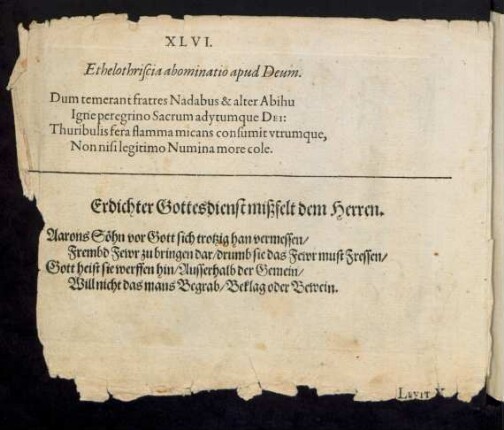 XLVI.
Ethelothriscia abominatio apud Deum.
Dum temerant fratres Nadabus & alter Abihu
Igne peregrino Sacrum adytumque DEI:
Thuribulis fera flamma micans consumit vtrumque,
Non nisi legitimo Numina more cole.
Erdichter Gottesdienst mißfelt dem Herren.
Aarons Söhn vor Gott sich trotzig han vermessen/
Frembd Fewr zu bringen dar/drumb sie das Fewr must Fressen/
Gott heist sie werffen hin/Ausserhalb der Gemein/
Will nicht das mans Begrab/Beklag oder Bewein.
LEVIT X